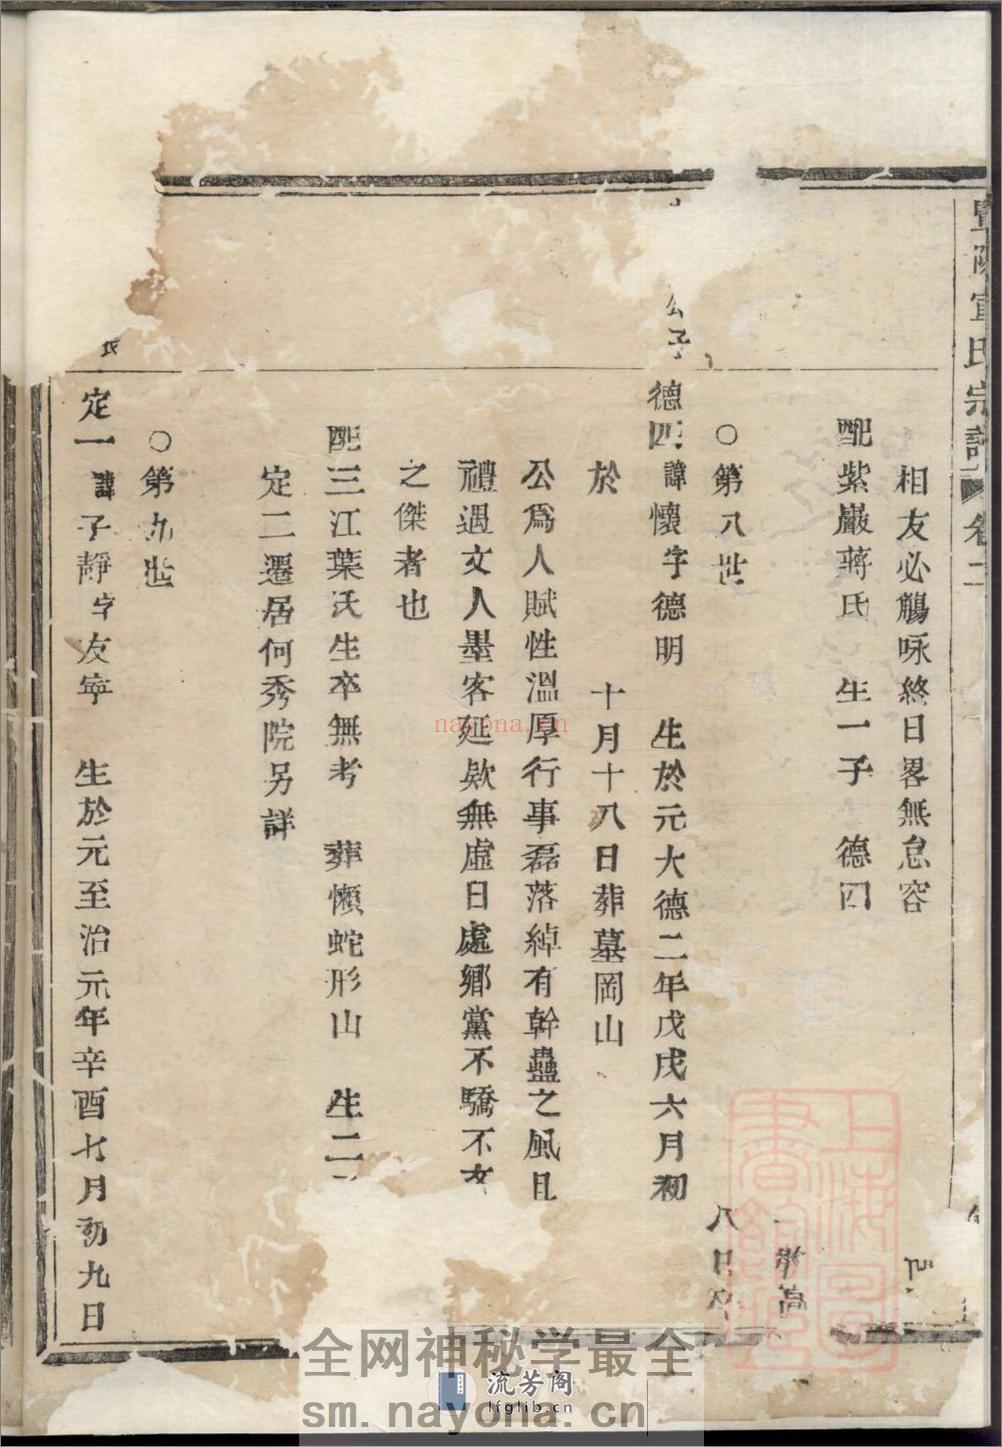 暨陽宣氏宗譜 卷二
相友必觴咏終日畧無怠容
配紫巖蔣氏 生一子 德四
○第八世
八日卒
公子
德四 諱懷字德明 生於元大德二年戊戌六月初
於 十月十八日葬墓岡山
公爲人賦性溫厚行事磊落綽有幹蠱之風且
禮遇文人墨客延欵無虛日處鄉黨不驕不
之傑者也
配三江葉氏生卒無考 葬懶蛇形山 生二
定二遷居何秀院另詳
○第九世
定一 諱子靜字友寧 生於元至治元年辛酉七月初九日
上海圖書館藏
nayona.cn
全网神秘学最全
流芳阁
lfglib.cn
sm.nayona.cn